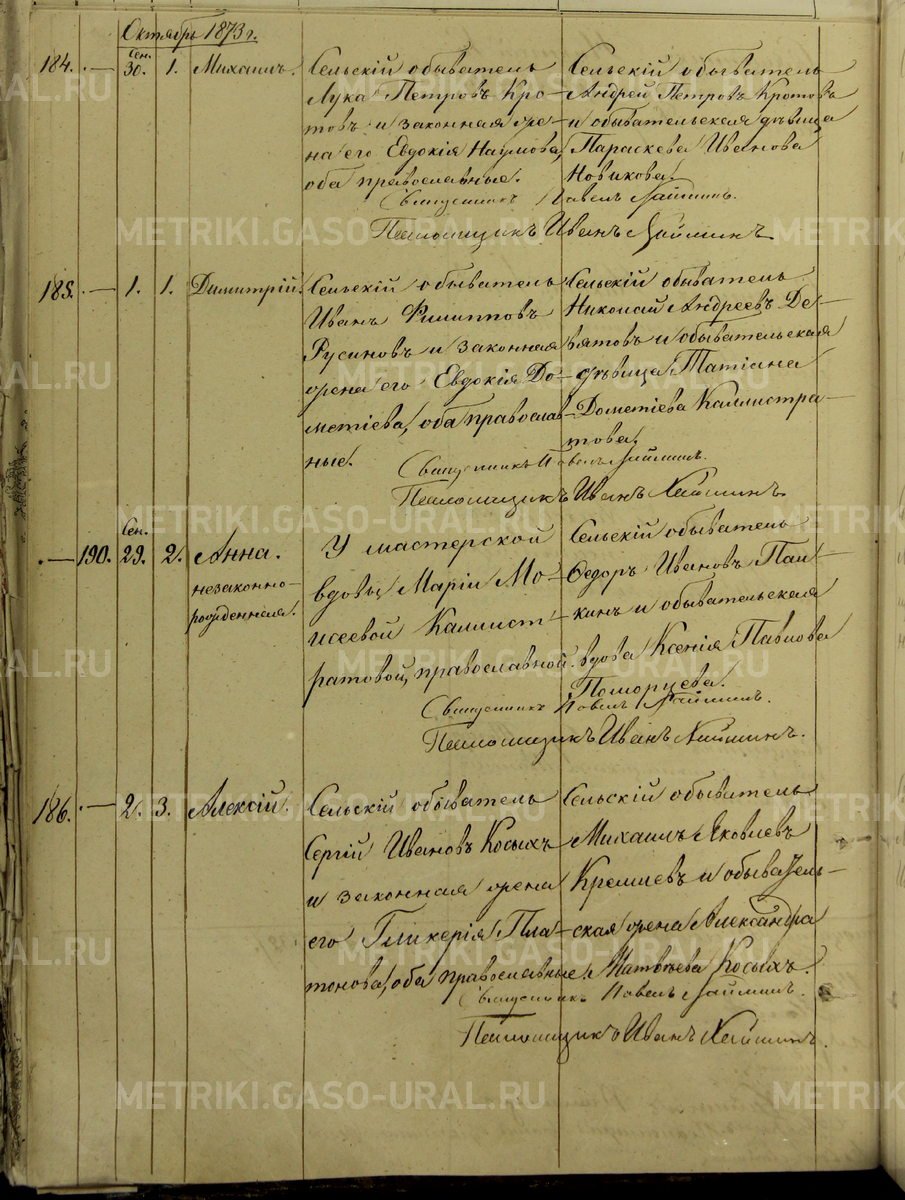 Октябрь 1873 г.
184. — Сен. 30. 1. Михаилъ. Сельскій обыватель
Лука Петровъ Кро-
товъ и законная же-
на его Евдокія Наумова,
оба православные.
Сельскій обыватель
Андрей Петровъ Кротовъ
и обывательская дѣвица
Параскева Иванова
Новикова.
Священникъ Павелъ
Псаломщикъ Иванъ
185. — 1. 1. Димитрій. Сельскій обыватель
Иванъ Филипповъ
Русиновъ и законная
жена его Евдокія До-
метіева, оба православ-
ные.
Сельскій обыватель
Николай Андреевъ Де-
вятовъ и обывательская
дѣвица Татіана
Дометіева Каллистра-
това.
Священникъ Павелъ
Псаломщикъ Иванъ
— 190. Сен. 29. 2. Анна.
незаконно-
рожденная.
У мастерской
вдовы Маріи Мо-
исеевой Каллист-
ратовой, православной.
Сельскій обыватель
Ѳедоръ Ивановъ Пал-
кинъ и обывательская
вдова Ксенія Павлова
Поморцева.
Священникъ Павелъ
Псаломщикъ Иванъ
186. — 2. 3. Алексій. Сельскій обыватель
Сергій Ивановъ Косыхъ
и законная жена
его Гликерія Пла-
тонова, оба православные.
Сельскій обыватель
Михаилъ Яковлевъ
Кремлевъ и обыватель-
ская жена Александра
Матвѣева Косыхъ.
Священникъ Павелъ
Псаломщикъ Иванъ
METRIKI.GASO-URAL.RU